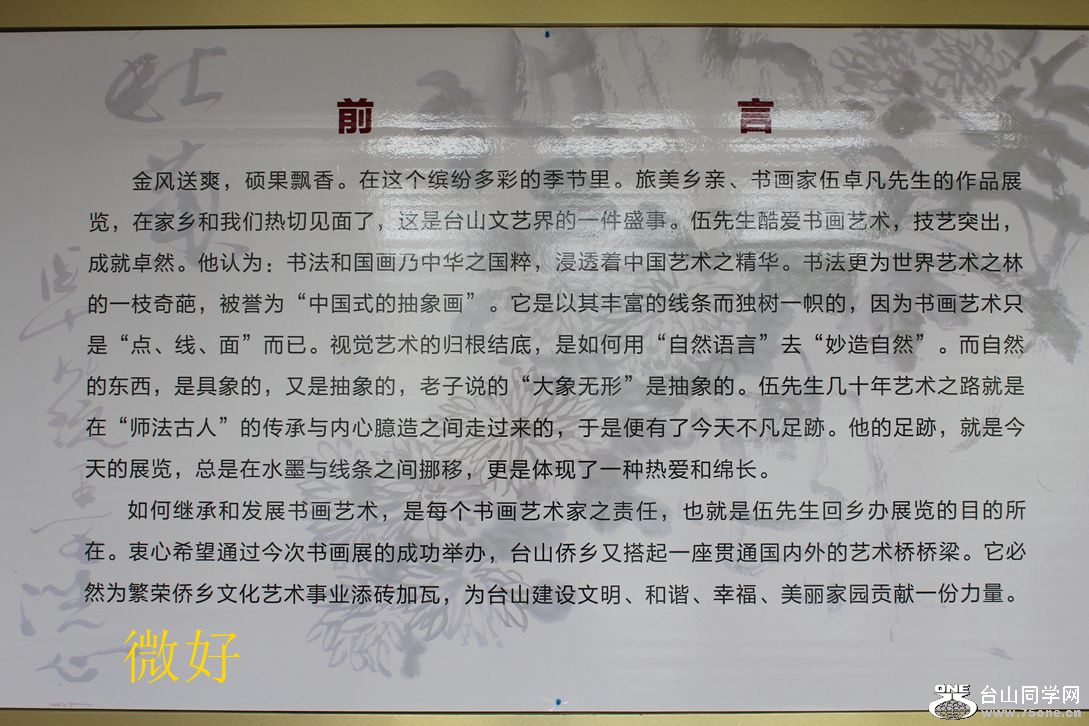 前 言
金风送爽，硕果飘香。在这个缤纷多彩的季节里。旅美乡亲、书画家伍卓凡先生的作品展
览，在家乡和我们热切见面了，这是台山文艺界的一件盛事。伍先生酷爱书画艺术，技艺突出，
成就卓然。他认为：书法和国画乃中华之国粹，浸透着中国艺术之精华。书法更为世界艺术之林
的一枝奇葩，被誉为“中国式的抽象画”。它是以其丰富的线条而独树一帜的，因为书画艺术只
是“点、线、面”而已。视觉艺术的归根结底，是如何用“自然语言”去“妙造自然”。而自然
的东西，是具象的，又是抽象的，老子说的“大象无形”是抽象的。伍先生几十年艺术之路就是
在“师法古人”的传承与内心臆造之间走过来的，于是便有了今天不凡足跡。他的足跡，就是今
天的展览，总是在水墨与线条之间挪移，更是体现了一种热爱和绵长。
如何继承和发展书画艺术，是每个书画艺术家之责任，也就是伍先生回乡办展览的目的所
在。衷心希望通过今次书画展的成功举办，台山侨乡又搭起一座贯通国内外的艺术桥桥梁。它必
然为繁荣侨乡文化艺术事业添砖加瓦，为台山建设文明、和谐、幸福、美丽家园贡献一份力量。
微好
ONE 台山同学网
www.75one.cn